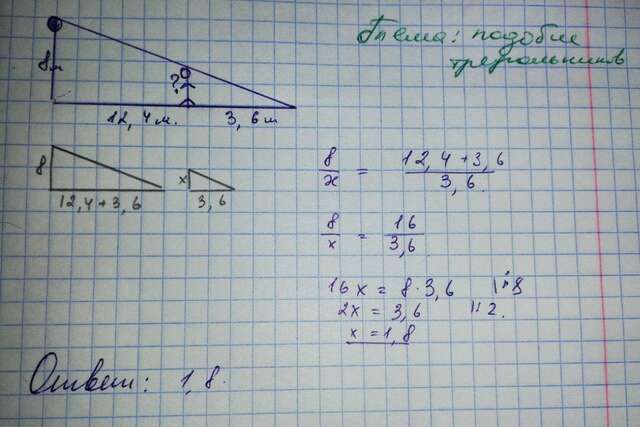 Тема: подобие
треугольников
8м
?
12,4 м. 3,6 м
8
12,4 + 3,6
x
3,6
8/x = 12,4 + 3,6/3,6.
8/x = 16/3,6
16x = 8 · 3,6 |:8
2x = 3,6 |: 2.
x = 1,8
Ответ: 1,8.